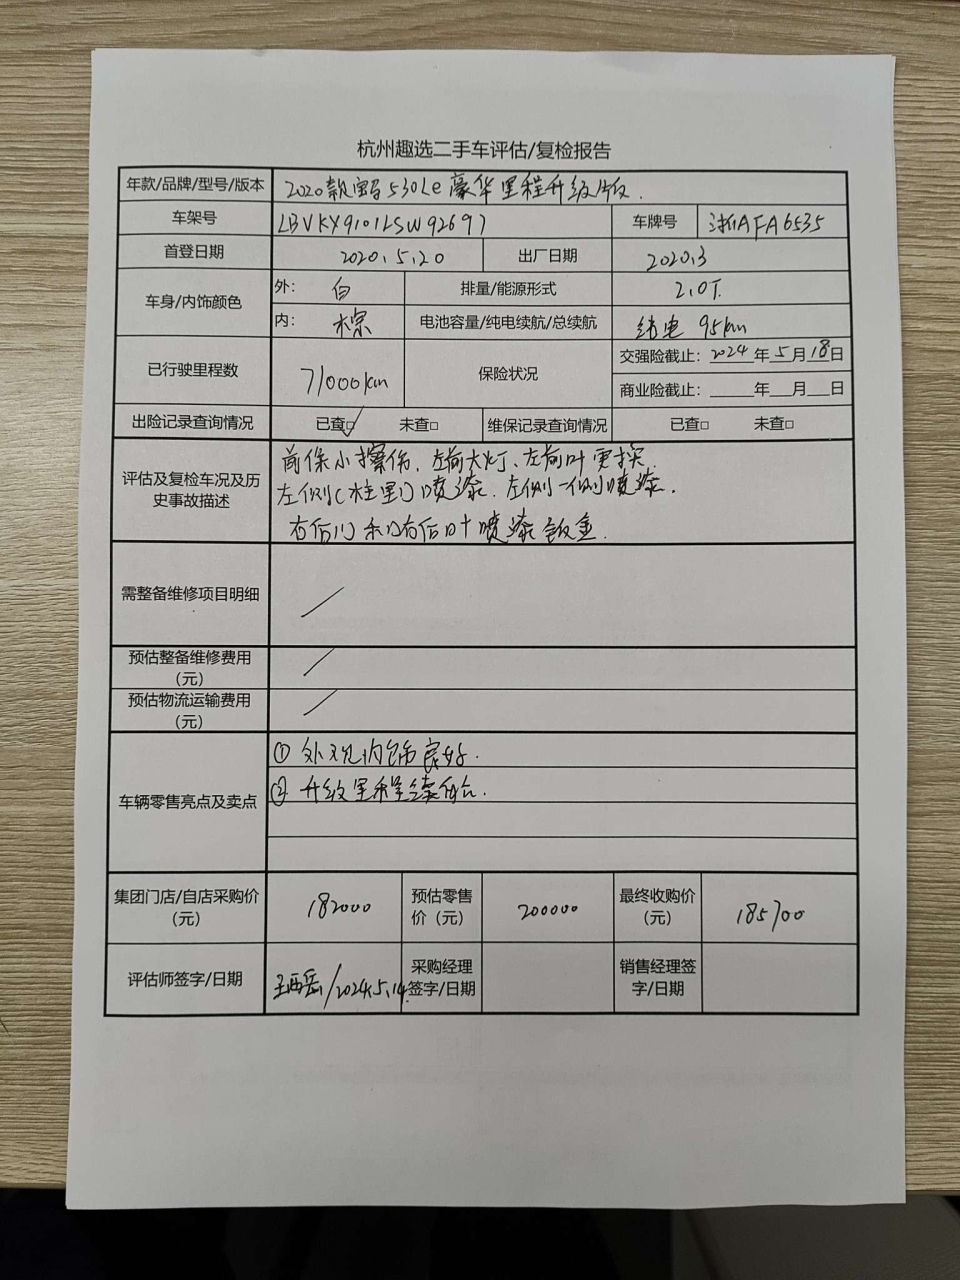 杭州趣选二手车评估/复检报告
年款/品牌/型号/版本 2020款宝马530Le豪华里程升级版.
车架号 LBVKY9101LSW92697 车牌号 浙AFA6535
首登日期 2020.5.20 出厂日期 2020.3
车身/内饰颜色 外: 白 排量/能源形式 2.0T.
内: 棕 电池容量/纯电续航/总续航 纯电 95km
已行驶里程数 71000km 保险状况 交强险截止: 2024年5月18日
商业险截止: ____年__月__日
出险记录查询情况 已查□✓ 未查□ 维保记录查询情况 已查□ 未查□
评估及复检车况及历史事故描述 前保小擦伤, 左前大灯、左前叶更换
左侧C柱里门喷漆. 左侧一侧喷漆.
右后门和右后叶喷漆钣金.
需整备维修项目明细 /
预估整备维修费用(元) /
预估物流运输费用(元) /
车辆零售亮点及卖点 ① 外观内饰良好.
② 升级里程续航.
集团门店/自店采购价(元) 182000 预估零售价(元) 200000 最终收购价(元) 185700
评估师签字/日期 /2024.5.14. 采购经理签字/日期 销售经理签字/日期